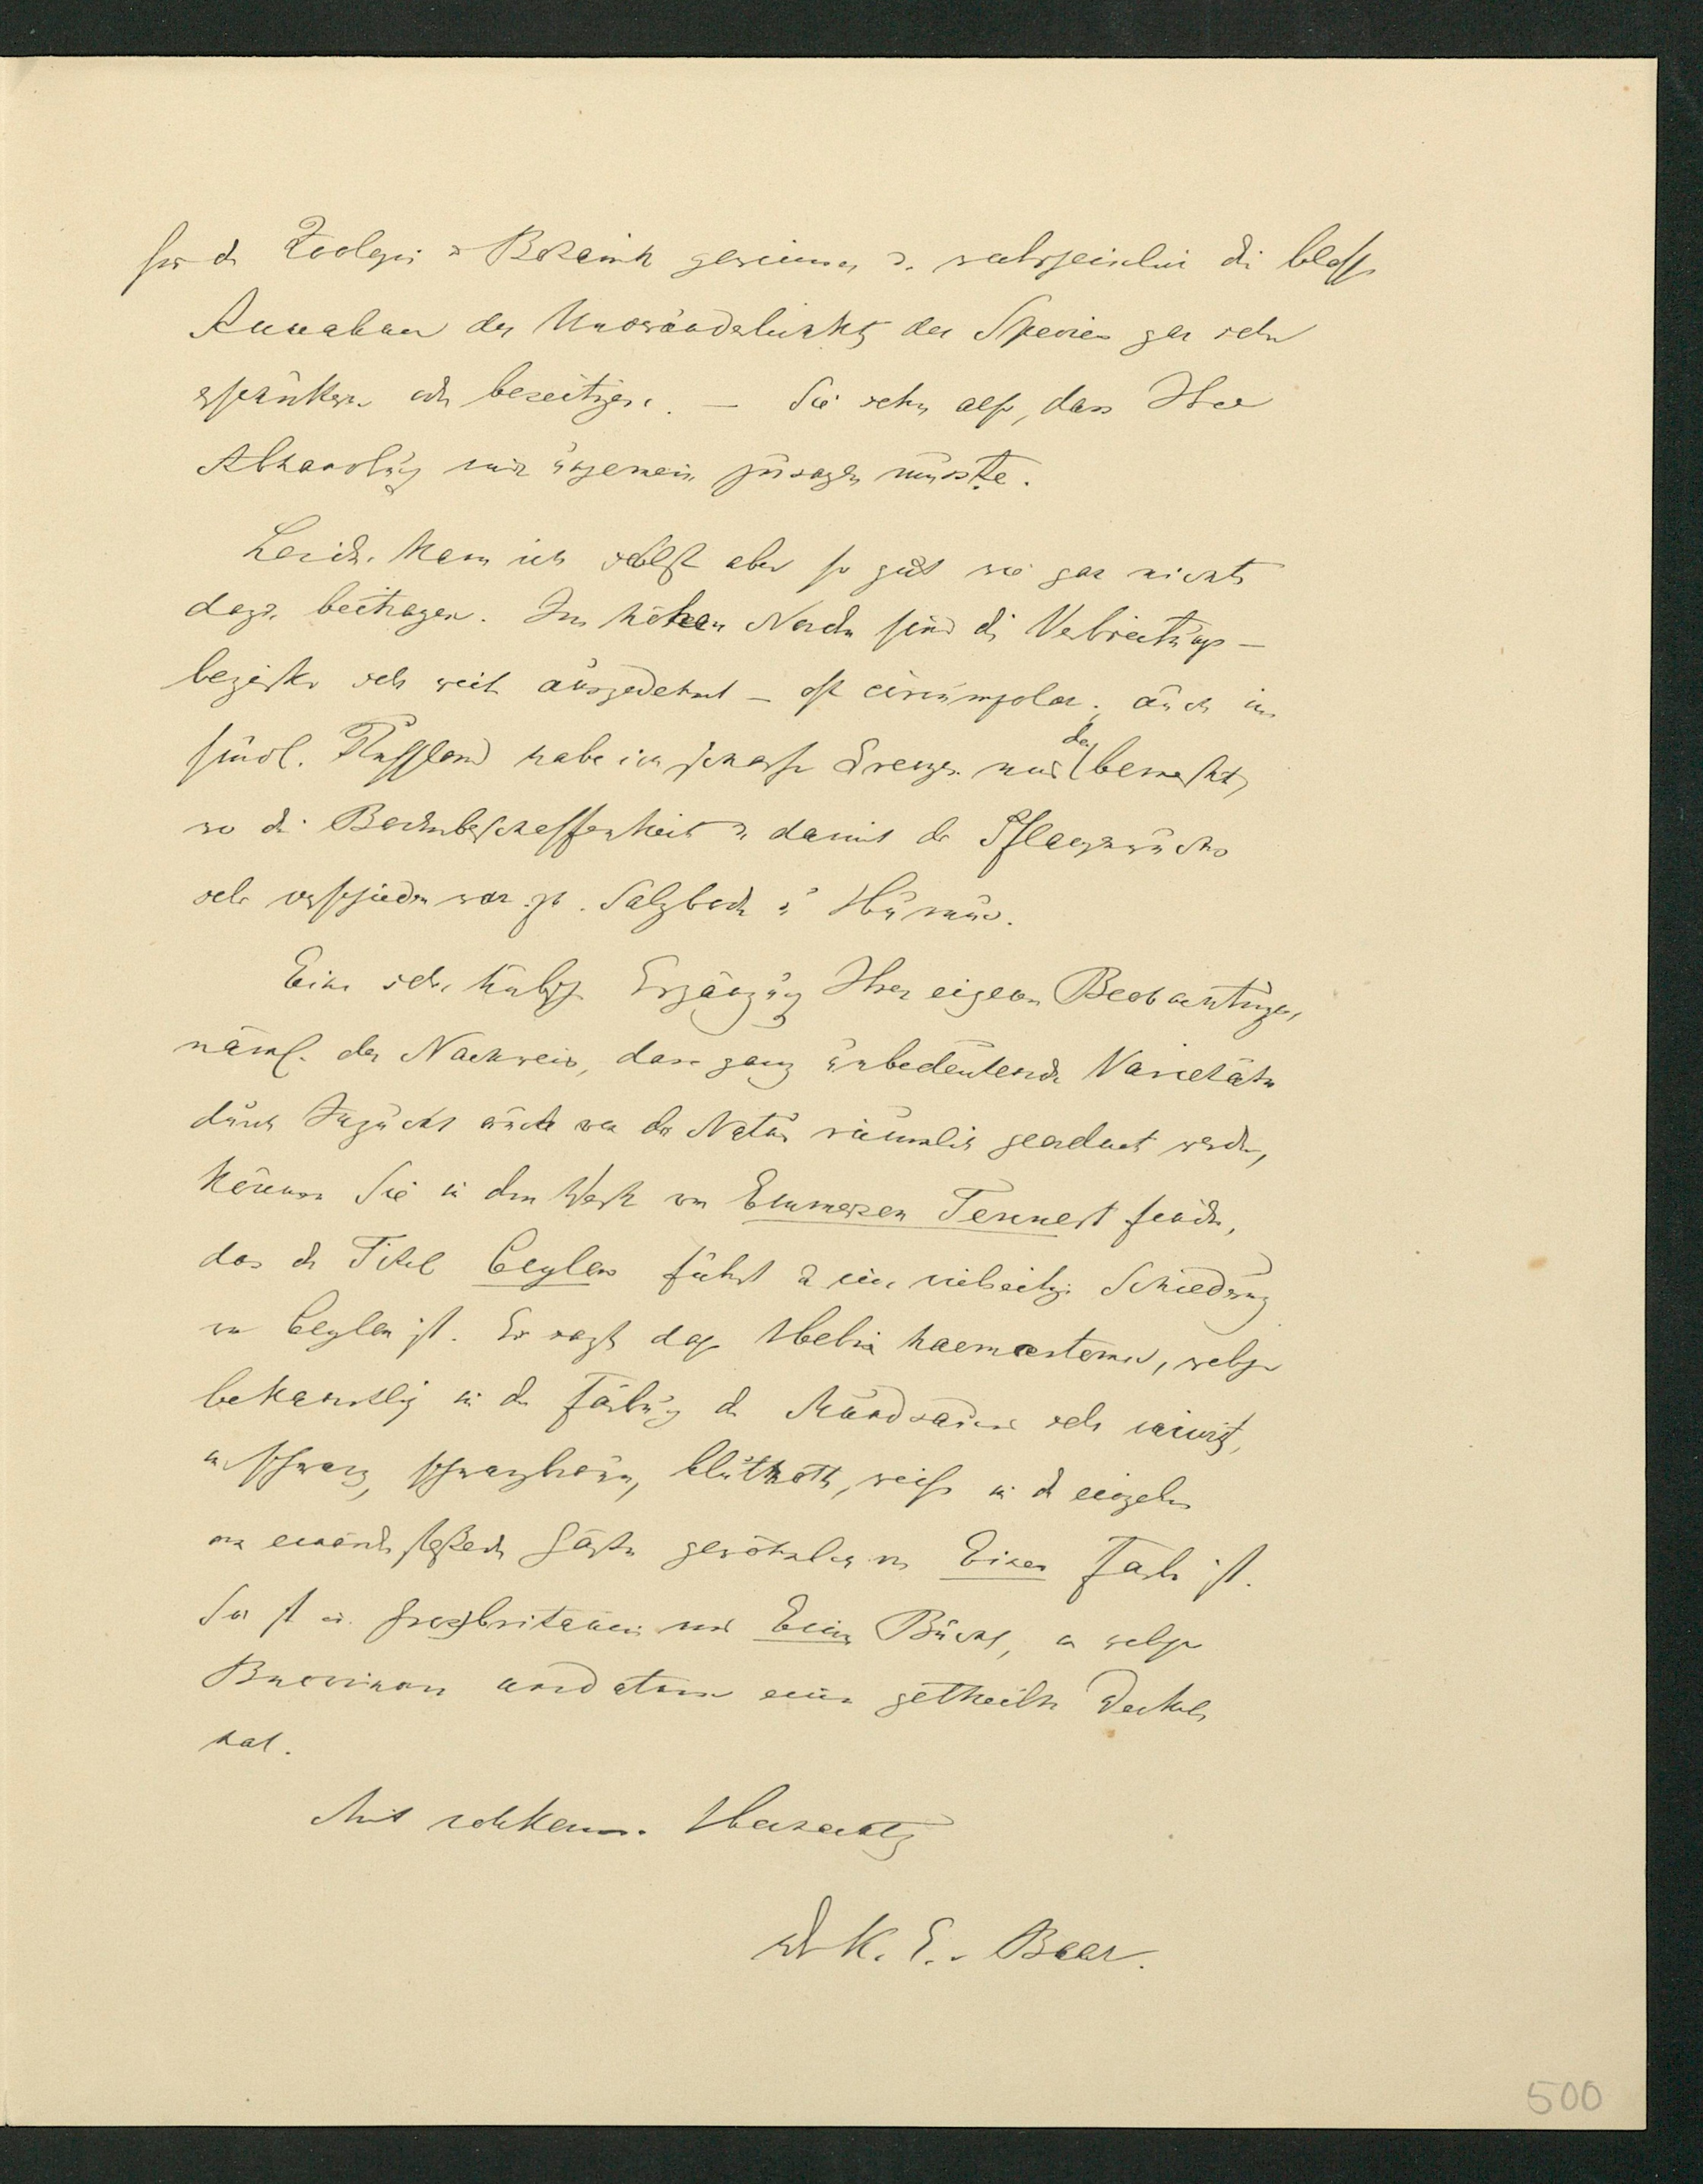 für die Zoologie u Botanik gewinnen u. wahrscheinlich die blosse
Annahme der Unwandelbarkeit der Species gar sehr
erschüttern oder beseitigen. — Sie sehn also, dass Ihre
Abhandlung mir ungemein zusagen müsste.
Leider kann ich selbst aber so gut wie gar nichts
dazu beitragen. Im hohen Norden sind die Verbreitungs-
bezirke sehr weit ausgedehnt — oft circumpolar; auch im
südl. Russland habe ich scharfe Grenzen nur da bemerkt,
wo die Bodenbeschaffenheit u damit der Pflanzenwuchs
sehr verschieden war. zB. Salzboden u Humus.
Eine sehr hübsche Ergänzung Ihrer eigenen Beobachtungen,
näml. der Nachweis, dass ganz unbedeutende Varietäten
durch Inzucht auch von der Natur räumlich geordnet werden,
können Sie in dem Werk von Emmerson Tennent finden,
das den Titel Ceylon führt u eine vielseitige Schilderung
von Ceylon ist. Er sagt dass Helix haemastoma, welche
bekanntlich in der Färbung des Mundsaums sehr variirt,
in schwarz, schwarzbraun, blutroth, weiss in den einzelnen
an einander stossenden Gärten gewöhnlich von Einer Farbe ist.
So ist in Grossbritanien nur Eine Bucht, in welcher
Buccinum undatum einen getheilten Deckel
hat.
Mit vollkomm. Hochachtg
Dr K. E. v Baer.
500